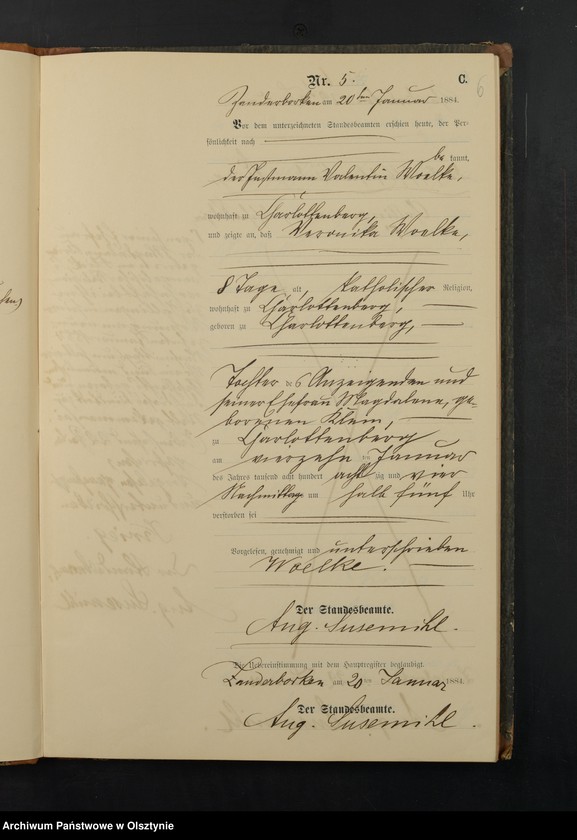 Nr. 5.
C.
6
Zanderborken am 20ten Januar 1884.
Vor dem unterzeichneten Standesbeamten erschien heute, der Per-
sönlichkeit nach
be kannt,
der Instmann Valentin Woelke,
wohnhaft zu Charlottenberg,
und zeigte an, daß Veronika Woelke,
8 Tage alt, katholischer Religion,
wohnhaft zu Charlottenberg,
geboren zu Charlottenberg,
Tochter des Anzeigenden und
seiner Ehefrau Magdalene, ge-
borenen Klein,
zu Charlottenberg
am vierzehn ten Januar
des Jahres tausend acht hundert acht zig und vier
Nachmittags um halb fünf Uhr
verstorben sei
Vorgelesen, genehmigt und unterschrieben
Woelke.
Der Standesbeamte.
Aug. Susemihl.
Die Uebereinstimmung mit dem Hauptregister beglaubigt.
Zanderborken am 20ten Januar 1884.
Der Standesbeamte.
Aug. Susemihl.
Archiwum Państwowe w Olsztynie